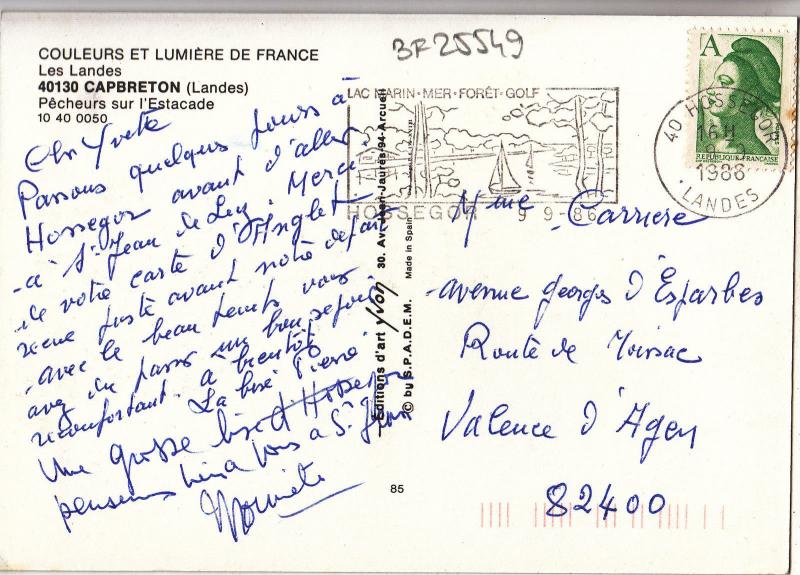 BF25549
COULEURS ET LUMIÈRE DE FRANCE
Les Landes
40130 CAPBRETON (Landes)
Pêcheurs sur l'Estacade
10 40 0050
Yvette
Passons quelques jours à
Hossegor avant d'aller
à St Jean de Luz. Merci
de votre carte d'Anglet
reçue juste avant notre départ
avec le beau temps vous
avez du passer un bon séjour
réconfortant. a bientôt
La bise Pierre
Une grosse bise d'Hossegor
penserons bien à vous a St Jean
LAC MARIN·MER·FORÊT·GOLF
HOSSEGOR 9-9-86
A
REPUBLIQUE FRANÇAISE
40 HOSSEGOR
16H
9-9
1986
LANDES
Editions d'art yvon 30. Av. Jean-Jaurès-94-Arcueil
© by S.P.A.D.E.M. Made in Spain
Mme Carriere
avenue georges d'Esparbes
Route de Moissac
Valence d'Agen
82400
85